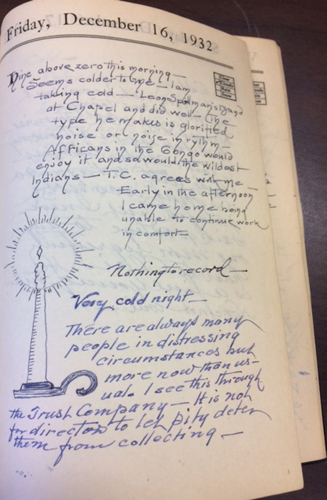 Friday, December 16, 1932
Nine above zero this morning —
Seems colder to me — I am
taking cold — Leon Spelman's band
at Chapel and did well The
type he makes is glorified
noise or noise in rythm —
Affricans in the Congo would
enjoy it and so would the wildest
Indians — T.C. agrees with me —
Early in the afternoon
I came home being
unable to continue work
in comfort —
Nothing to record —
Very cold night —
There are always many
people in distressing
circumstances but
more now than us-
ual. I see this through
the Trust Company — It is not
for directors to let pity deter
them from collecting —